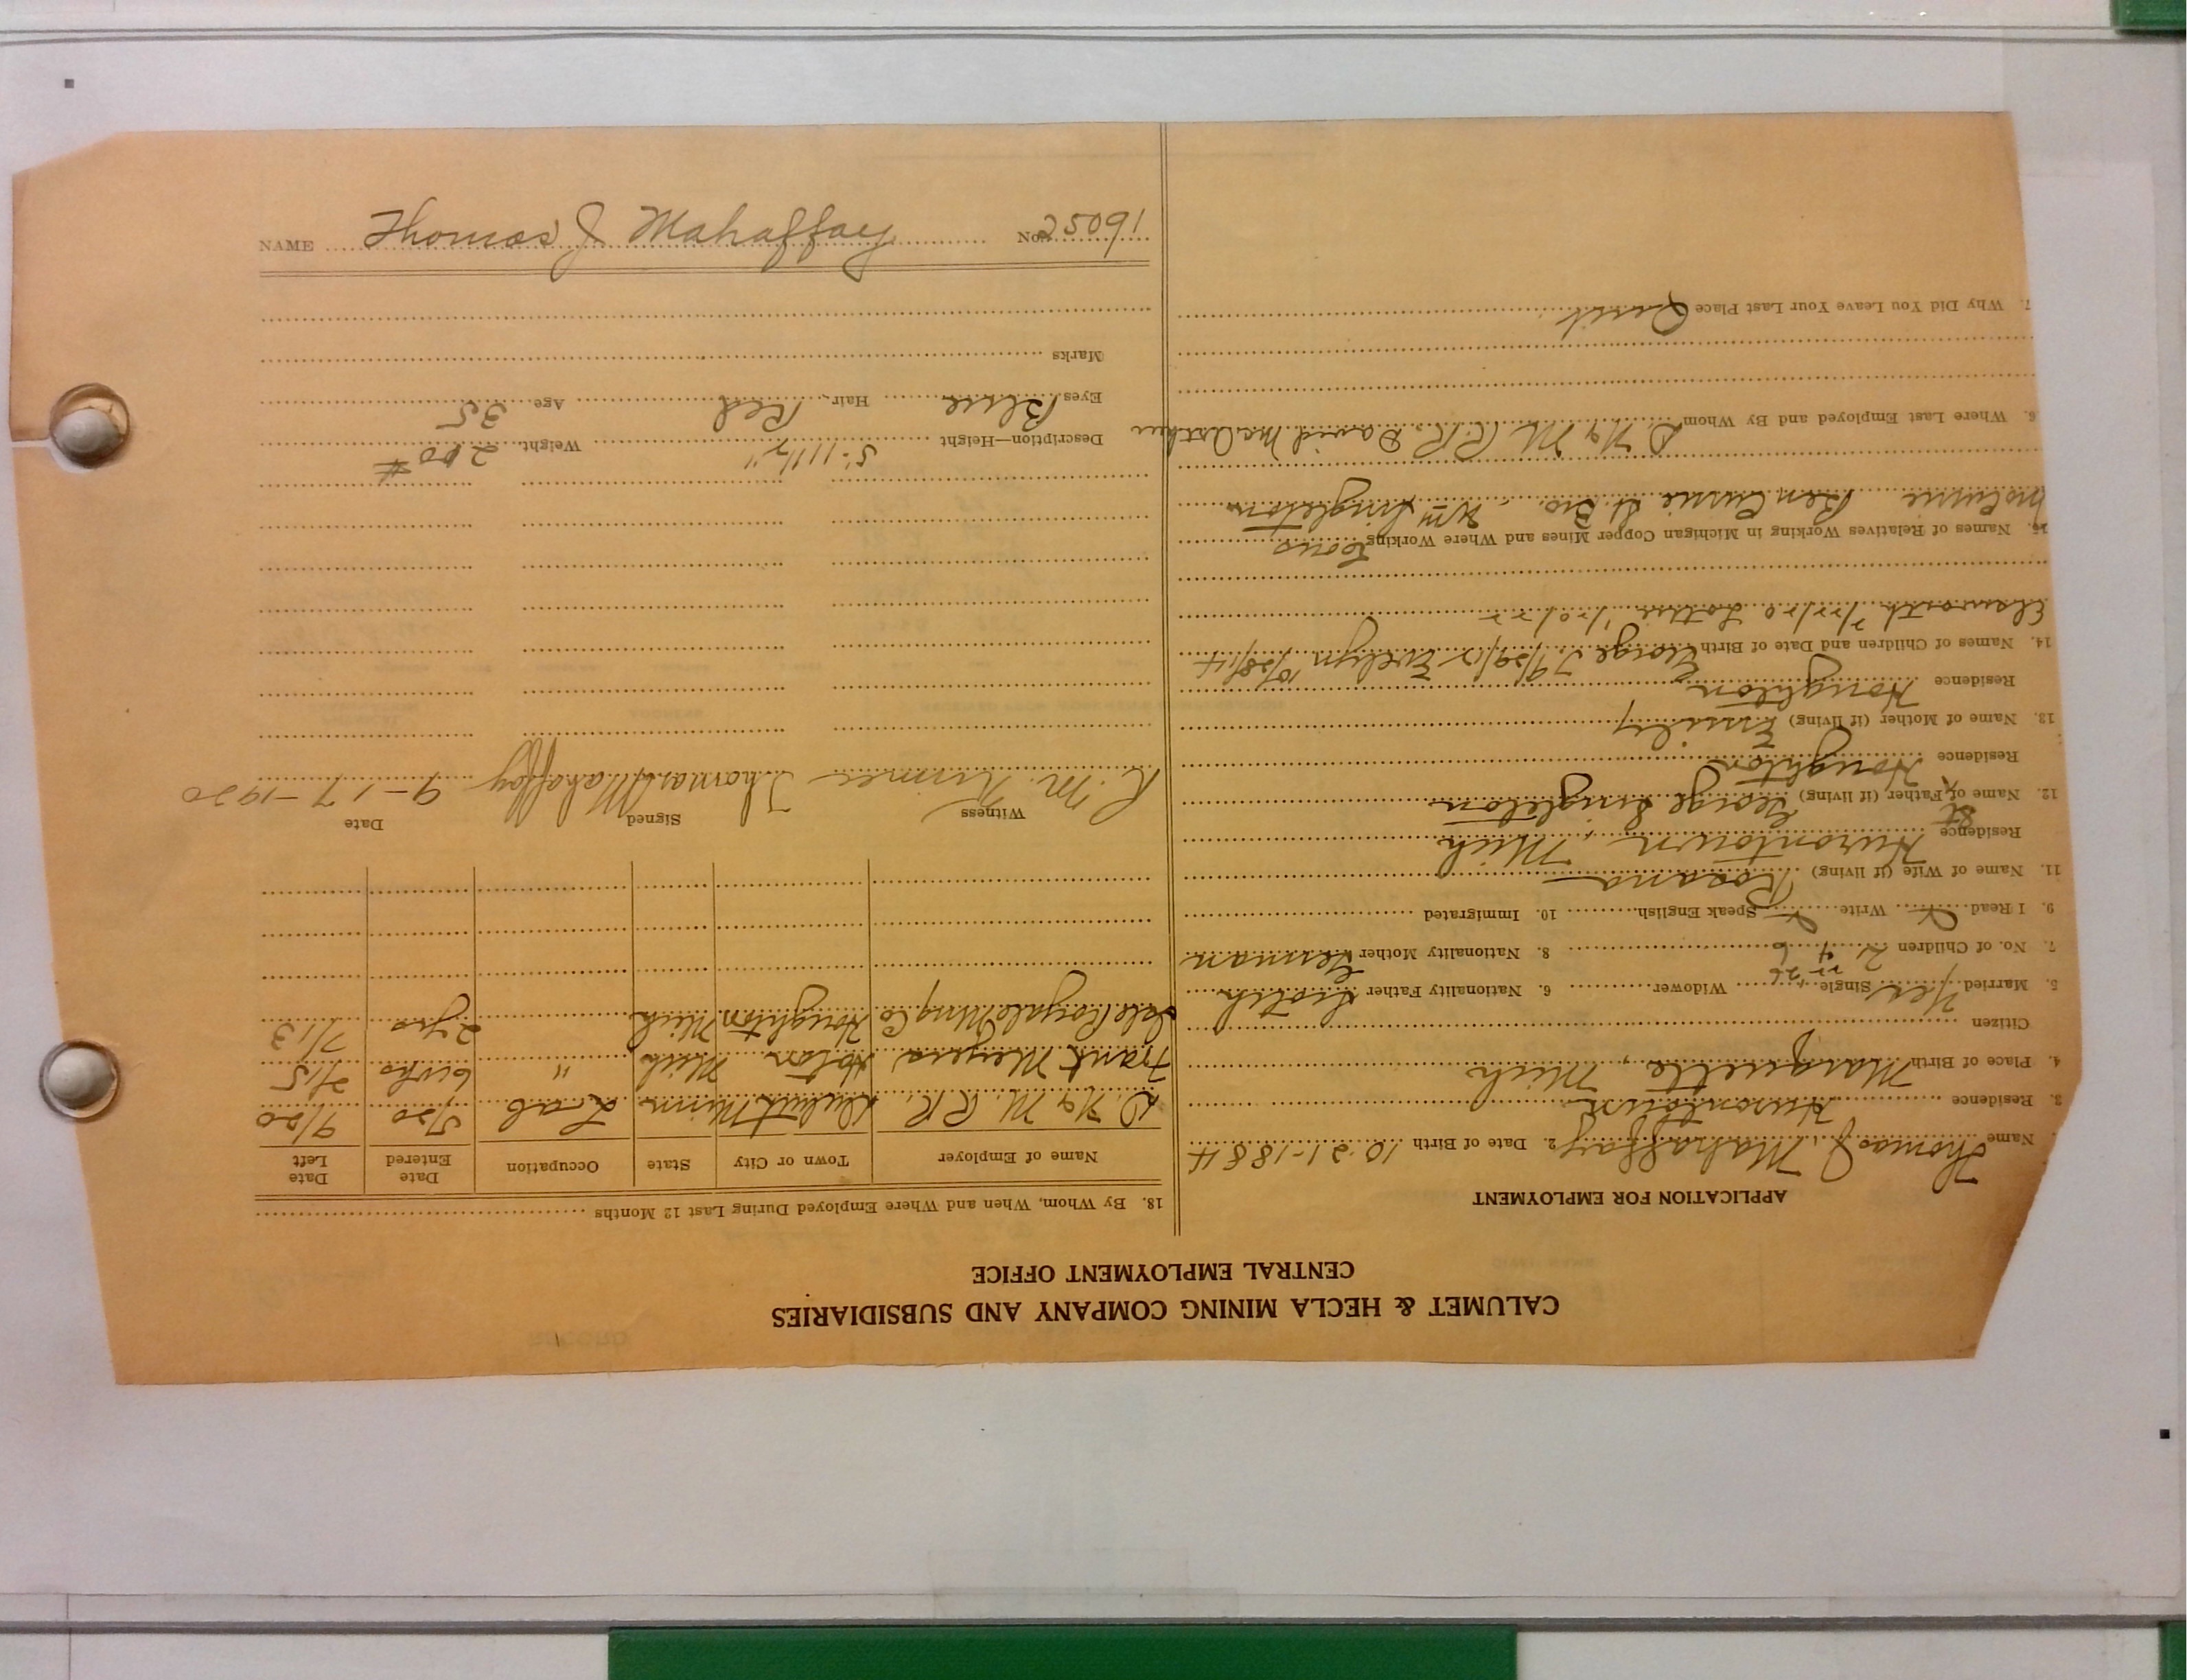 CALUMET & HECLA MINING COMPANY AND SUBSIDIARIES
CENTRAL EMPLOYMENT OFFICE
APPLICATION FOR EMPLOYMENT
Name Thomas J. Mahaffay 2. Date of Birth 10-21-1884
3. Residence Hurontown
4. Place of Birth Marquette, Mich
Citizen
5. Married Yes Single Widower 6. Nationality Father Scotch
7. No. of Children 2 4 6 8. Nationality Mother German
9. I Read Write Speak English 10. Immigrated
11. Name of Wife (if living) Rosana
Residence Hurontown, Mich
12. Name of St Father (if living) George Singleton
Residence Houghton
13. Name of Mother (if living) Emily
Residence Houghton
14. Names of Children and Date of Birth George T 9/29/12 Evelyn 10/28/14
7/22/20 Lottie 1/20/22
15. Names of Relatives Working in Michigan Copper Mines and Where Working
Ben Currie St Bro. Wm Singleton
6. Where Last Employed and By Whom D. N & M. R.R. David
7. Why Did You Leave Your Last Place Quit
18. By Whom, When and Where Employed During Last 12 Months
Name of Employer Town or City State Occupation Date Entered Date Left
D. N & M. R.R. Duluth Minn Lab 5/20 9/20
Frank Meyers Hoton Mich " 6 wks 2/15
Isle Royale Mng Co Houghton Mich 2 yrs 7/13
Witness Signed Date
R. M. Thomas J Mahaffay 9-17-1920
Description—Height 5' 11 1/2" Weight 200 #
Eyes Blue Hair Red Age 35
Marks
NAME Thomas J Mahaffay No. 25091
RECORD